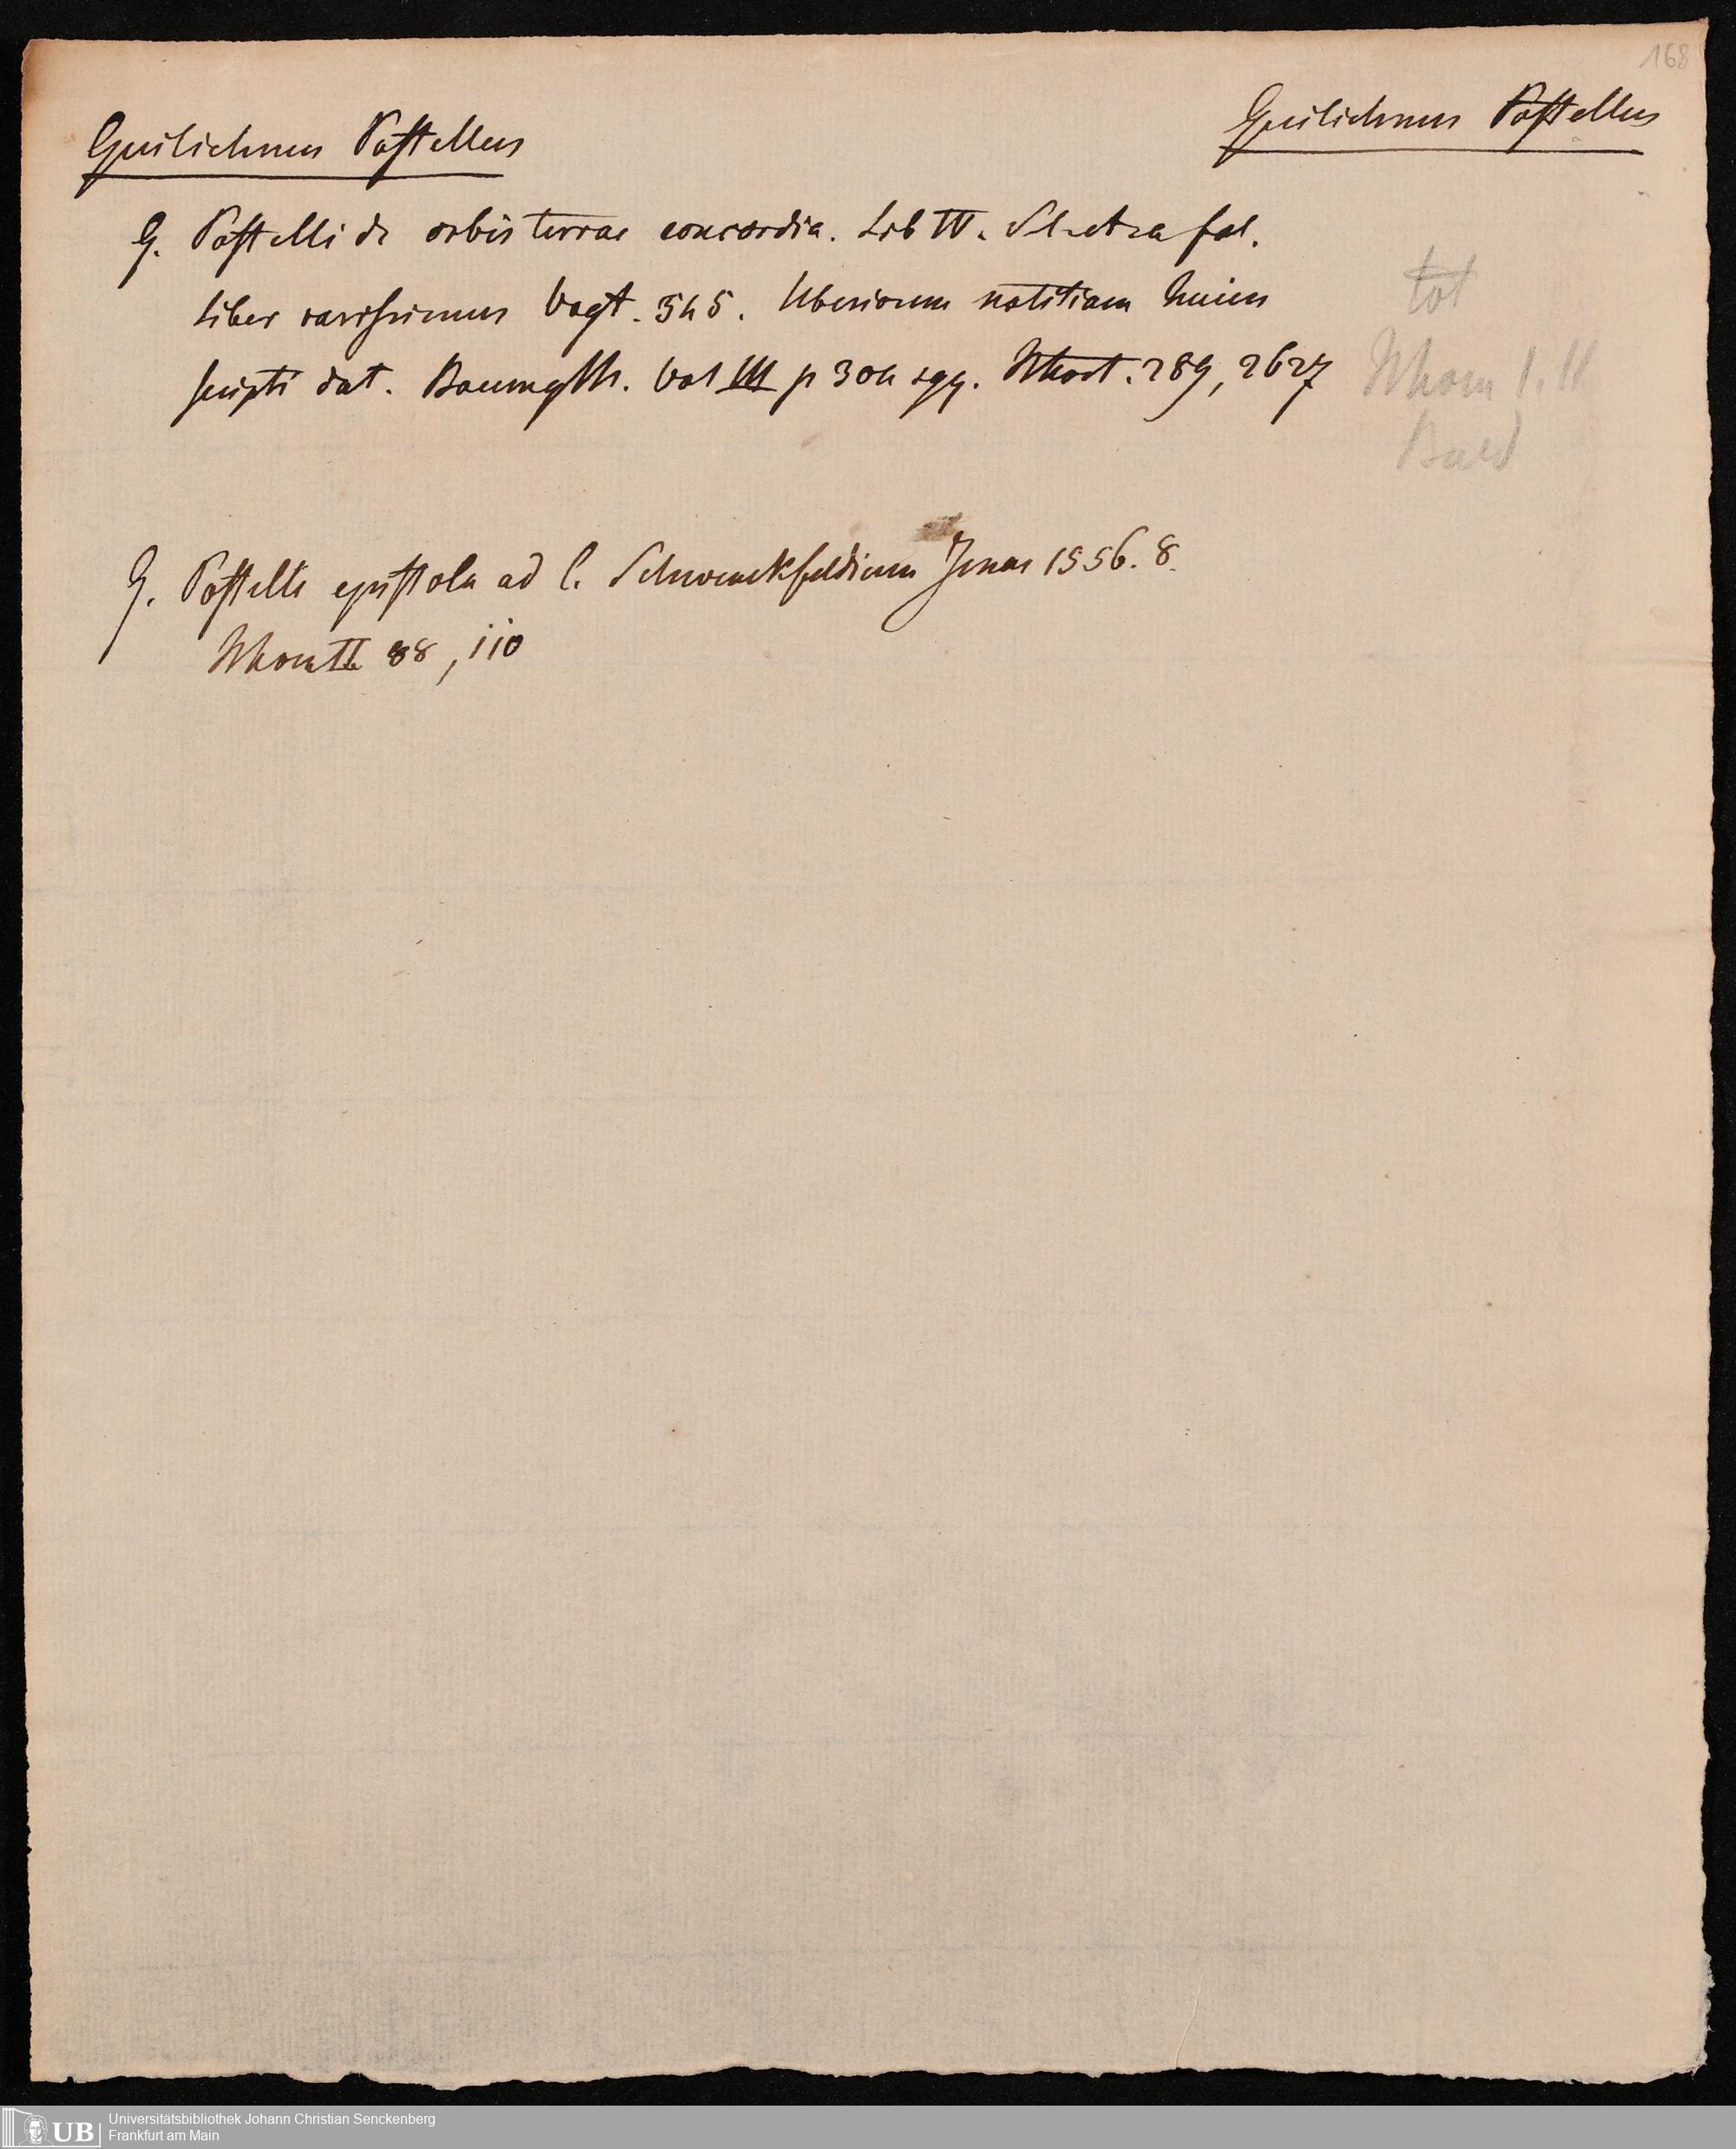 168
Guilielmus Postellus
Guilielmus Postellus
G. Postelli de orbis terrae concordia. Lib IV. fol.
Liber rarissimus Vogt. 545. Uberiorem notitiam huius
scripti dat. Baumgtt. Vol III p 304 sqq. 289, 2627
tot
I. II
G. Postelli epistola ad C. Schwenckfeldium Jenae 1556. 8.
II 88, 110
Universitätsbibliothek Johann Christian Senckenberg
Frankfurt am Main
UB